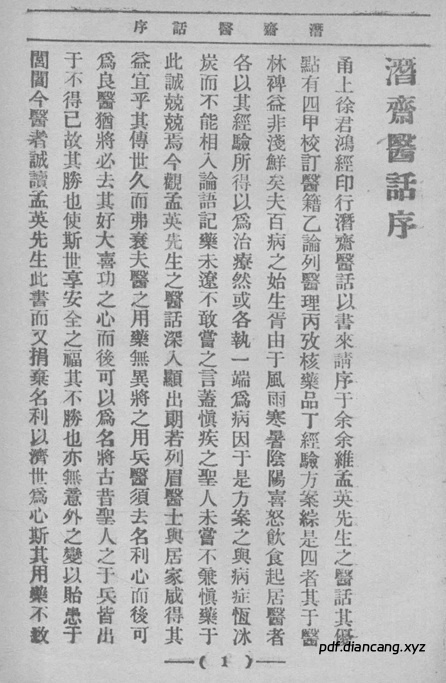 潛齋醫話序
潛齋醫話序
甬上徐君鴻經印行潛齋醫話以書來請序于余余維孟英先生之醫話其優
點有四甲校訂醫籍乙論列醫理丙攷核藥品丁經驗方案綜是四者其于醫
林裨益非淺鮮矣夫百病之始生胥由于風雨寒暑陰陽喜怒飲食起居醫者
各以其經驗所得以爲治療然或各執一端爲病因于是方案之與病症恆冰
炭而不能相入論語記藥未達不敢嘗之言蓋愼疾之聖人未嘗不兼愼藥于
此誠兢兢焉今觀孟英先生之醫話深入顯出朗若列眉醫士與居家咸得其
益宜乎其傳世久而弗衰夫醫之用藥無異將之用兵醫須去名利心而後可
爲良醫猶將必去其好大喜功之心而後可以爲名將古昔聖人之于兵皆出
于不得已故其勝也使斯世享安全之福其不勝也亦無意外之變以貽患于
閭閻今醫者誠讀孟英先生此書而又捐棄名利以濟世爲心斯其用藥不致
—( 1 )—
pdf.diancang.xyz